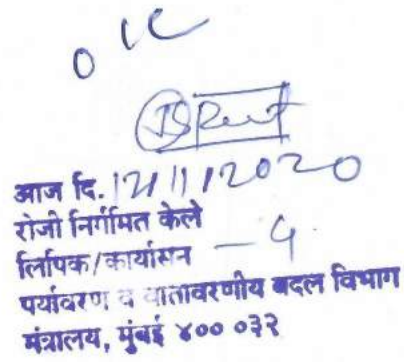 आज दि. 12/11/2020
रोजी निर्गमित केले
लिपिक/कार्यासन - 4
पर्यावरण व वातावरणीय बदल विभाग
मंत्रालय, मुंबई ४०० ०३२